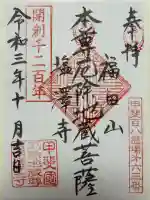 奉拝
甲斐百八霊場第六二番
福田山
本尊厄除地蔵菩薩
塩澤寺
開創千二百年
令和三年十月吉日
甲斐国